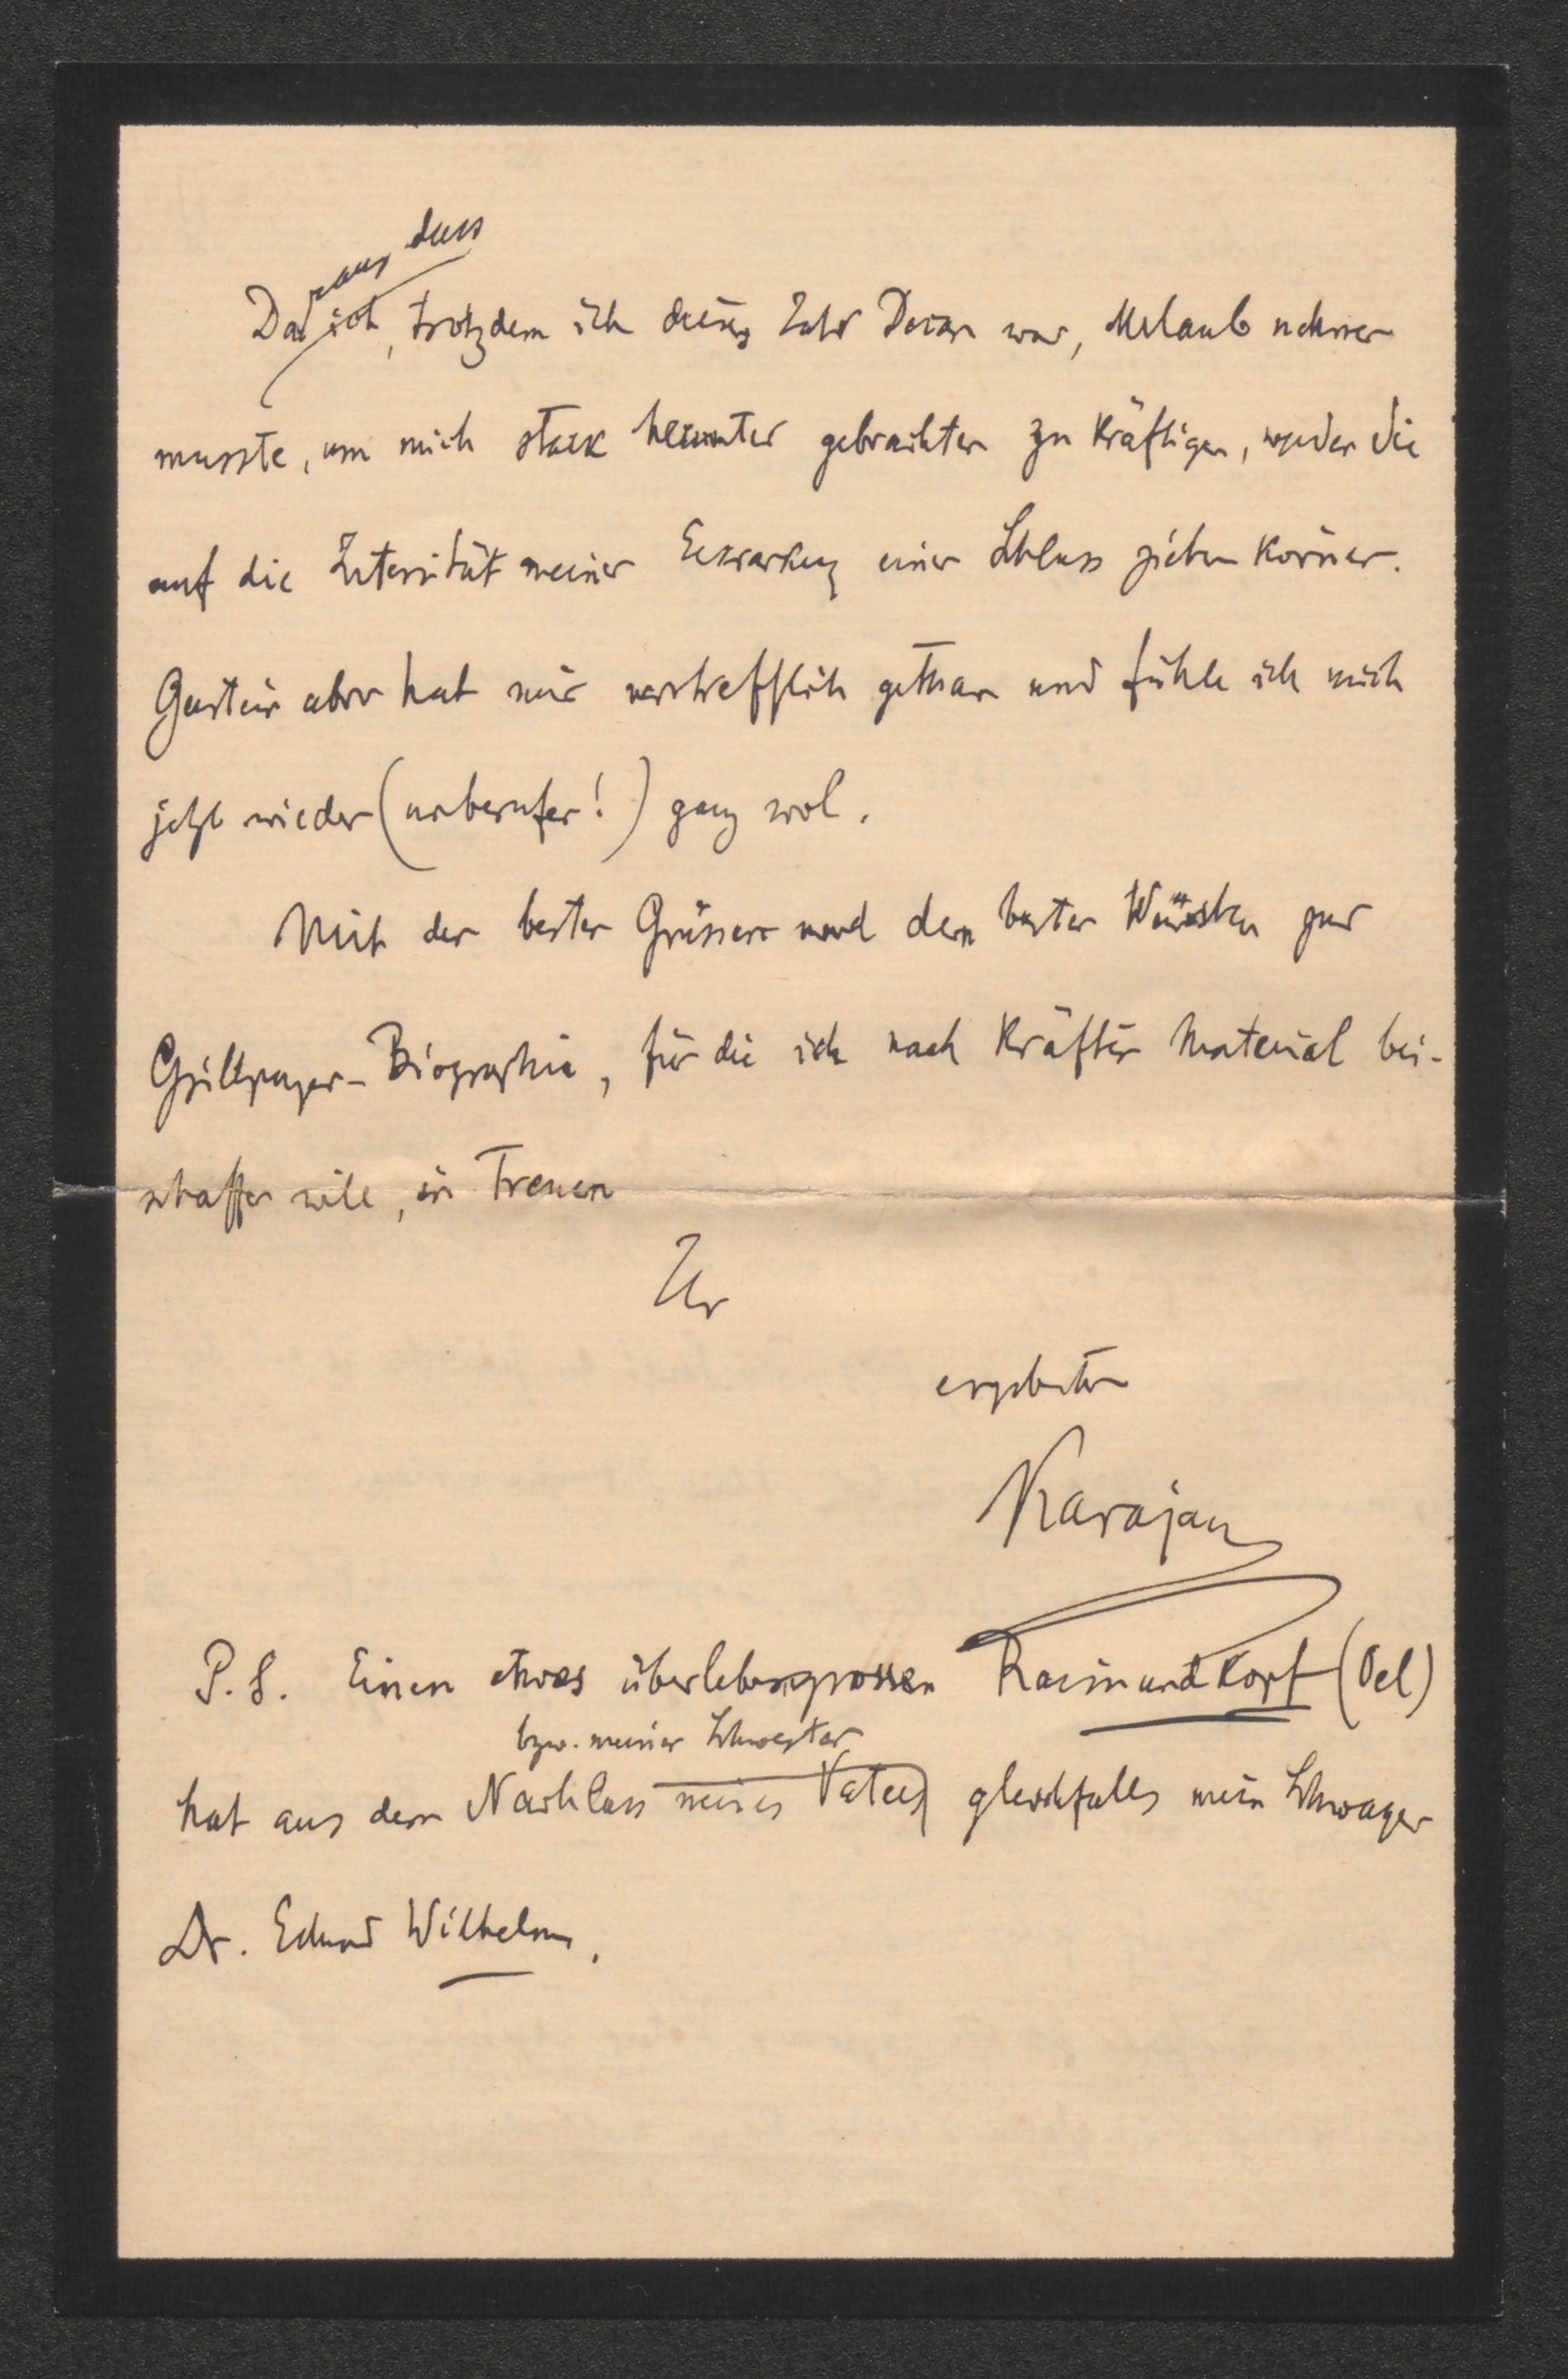 Daraus dass ich, trotzdem ich dieses Jahr Decan war, Urlaub nehmen
musste, um mich stark herunter gebrachten zu kräftigen, werden Sie
auf die Intensität meiner Erkrankung einen Schluss ziehen können.
Gastein aber hat mir vortrefflich gethan und fühle ich mich
jetzt wieder (unberufen!) ganz wol.
Mit den besten Grüssen und den besten Wünschen zur
Grillparzer-Biographie, für die ich nach Kräften Material bei-
schaffen will, in Treuen
Ihr
ergebenster
Karajan
P.S. Einen etwas überlebensgrossen Raimundkopf (Oel)
bzw. meiner Schwester
hat aus dem Nachlass meines Vaters gleichfalls mein Schwager
Dr. Eduard Wilhelm.